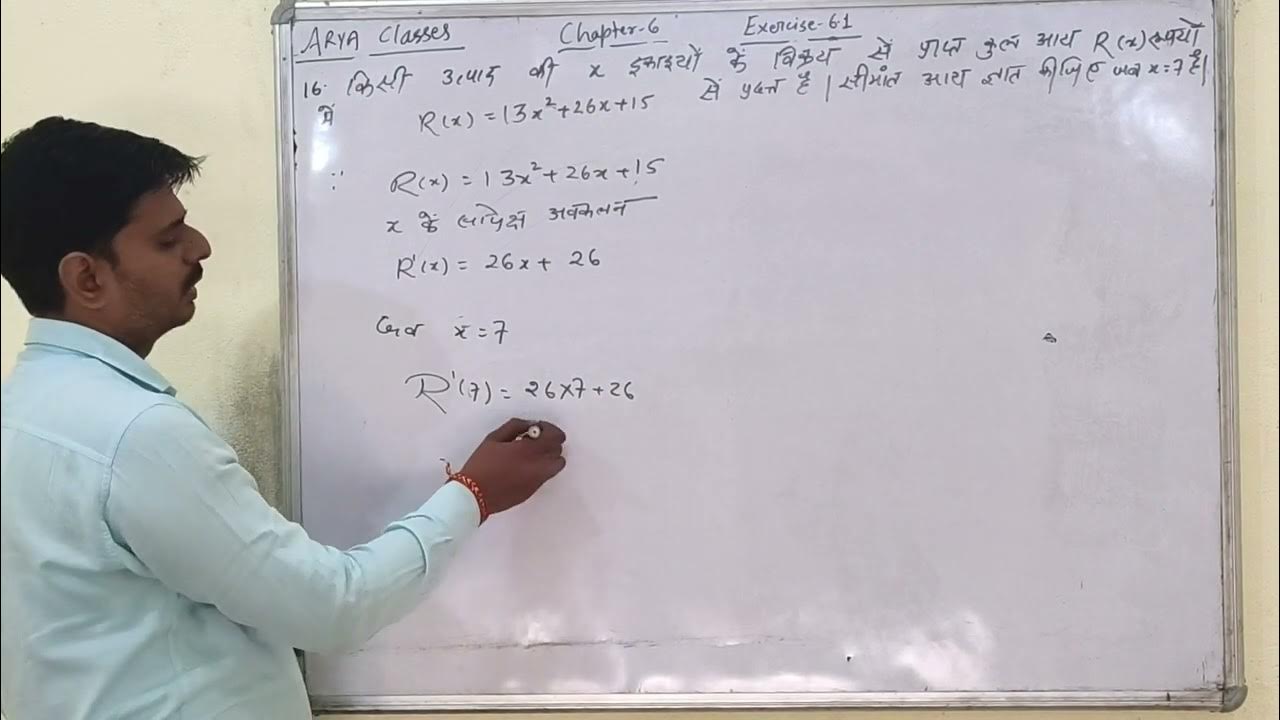 ARYA Classes Chapter-6 Exercise-6.1
16. किसी उत्पाद की x इकाइयों के विक्रय से प्राप्त कुल आय R(x) रूपयों
में R(x) = 13x²+26x+15 से प्रदत्त है। सीमांत आय ज्ञात कीजिए जब x=7 है।
∵ R(x) = 13x²+26x+15
x के सापेक्ष अवकलन
R'(x) = 26x + 26
जब x=7
R'(7) = 26x7+26